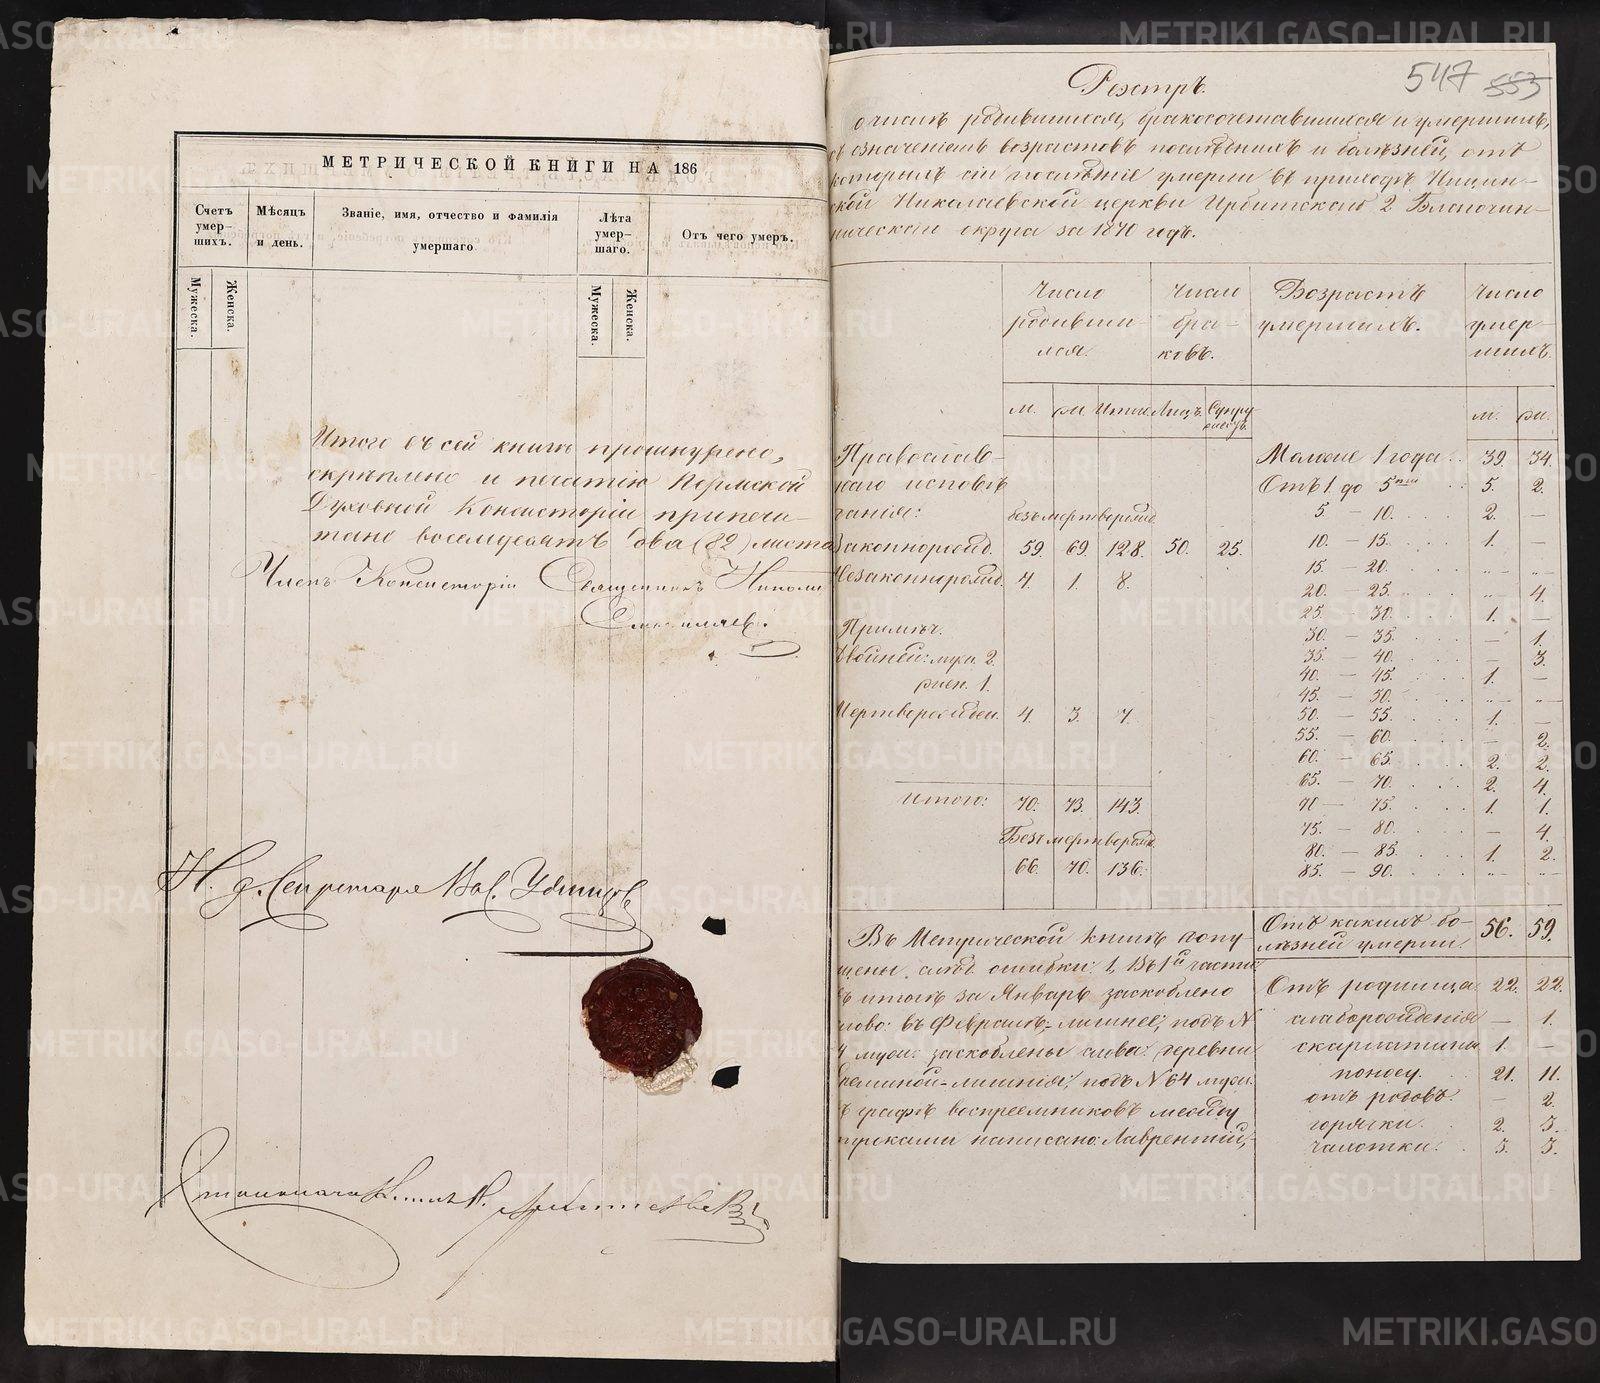 МЕТРИЧЕСКОЙ КНИГИ НА 186
Счетъ умер-шихъ.
Мѣсяцъ и день.
Званіе, имя, отчество и фамилія умершаго
Лѣта умер-шаго.
Отъ чего умеръ.
Мужеска.
Женска.
Мужеска.
Женска.
Итого въ сей книгѣ прошнурено,
скрѣплено и печатію Пермской
Духовной Консисторіи припеча-
тано восемдесятъ два (82) листа
Членъ Консисторіи Священникъ Николай
Н. д. Секретаря Вас. Удинцов
Столоначальникъ
547 553
Реэстръ.
о числѣ родившихся, бракосочетавшихся и умершихъ,
съ означеніемъ возрастовъ послѣднихъ и болѣзней, отъ
которыхъ сіи послѣдніе умерли въ приходѣ Ницин-
ской Николаевской церкви Ирбитскаго 2 Благочин-
ническаго округа за 1870 годъ.
Число родивши-хся.
Число бра-ковъ.
Возрастъ умершихъ.
Число умер-шихъ.
м. ж. Итого Лицъ. Супружествъ.
м. ж.
Православ-
наго исповѣ-
данія:
безъ мертворожд.
Законнорожд. 59. 69. 128. 50. 25.
Незаконнорожд. 7. 1. 8.
Примѣч.
Двойней: муж. 2.
жен. 1.
Мертворожден. 4. 3. 7.
Итого: 70. 73. 143.
Безъ мертворожд.
66. 70. 136.
Моложе 1 года . . 39. 34.
Отъ 1 до 5ти . . 5. 2.
5. — 10. . . . 2. —
10. — 15. . . . 1. —
15. — 20. . . . „ „
20. — 25. . . . „ 4.
25. — 30. . . . 1. —
30. — 35. . . . — 1.
35. — 40. . . . — 3.
40. — 45. . . . 1. —
45. — 50. . . . „ „
50. — 55. . . . 1. —
55. — 60. . . . — 2.
60. — 65. . . . 2. 2.
65. — 70. . . . 2. 4.
70 — 75. . . . 1. 1.
75. — 80. . . . — 4.
80. — 85. . . . 1. 2.
85. — 90. . . . „ „
Отъ какихъ бо-
лѣзней умерли. 56. 59.
Отъ родимца 22. 22.
слаборожденія — 1.
скарлатины 1. —
поносу. 21. 11.
отъ родовъ. — 2.
горячки. 2. 3.
чахотки. 3. 3.
Въ Метрической книгѣ допу-
щены слѣд. ошибки: 1, Въ 1й части
въ итогѣ за Январь заскоблено
слово: въ Февралѣ,-лишнее; подъ N
муж: заскоблены слова: деревни
-лишнія; подъ N 64 муж.
въ графѣ воспреемниковъ между
строками написано: Лаврентій,-
METRIKI.GASO-URAL.RU